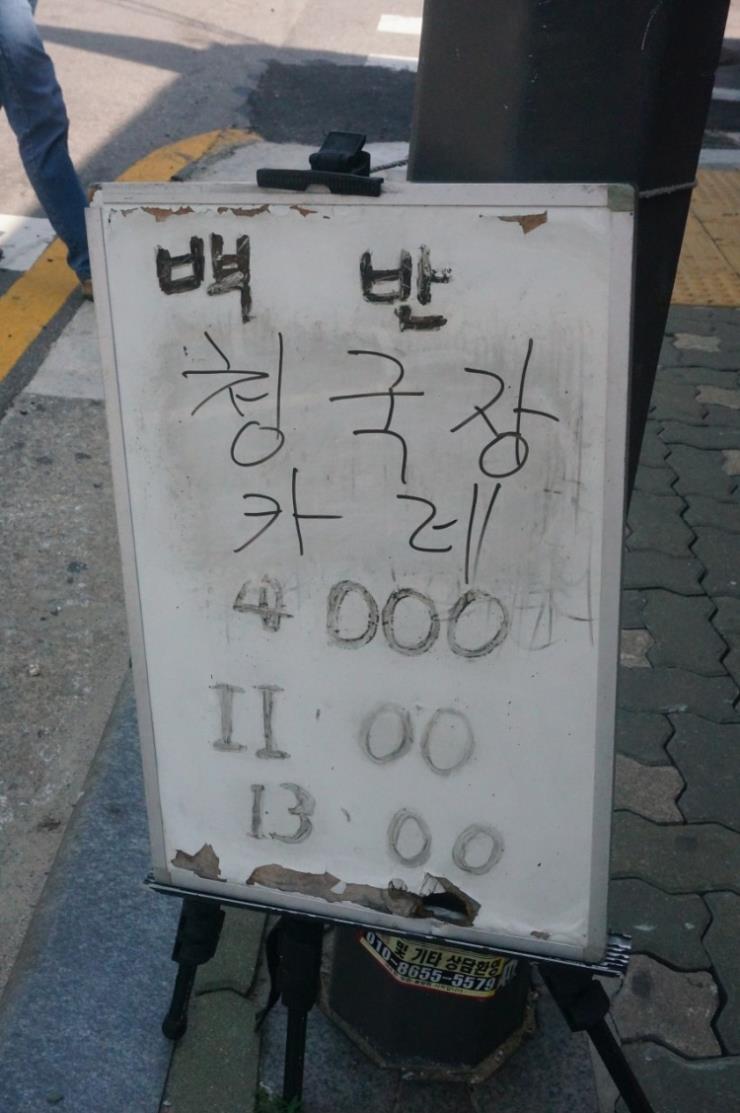 백 반
청국장
카레
4000
11 00
13 00
및 기타 상담환영
010-8655-5579